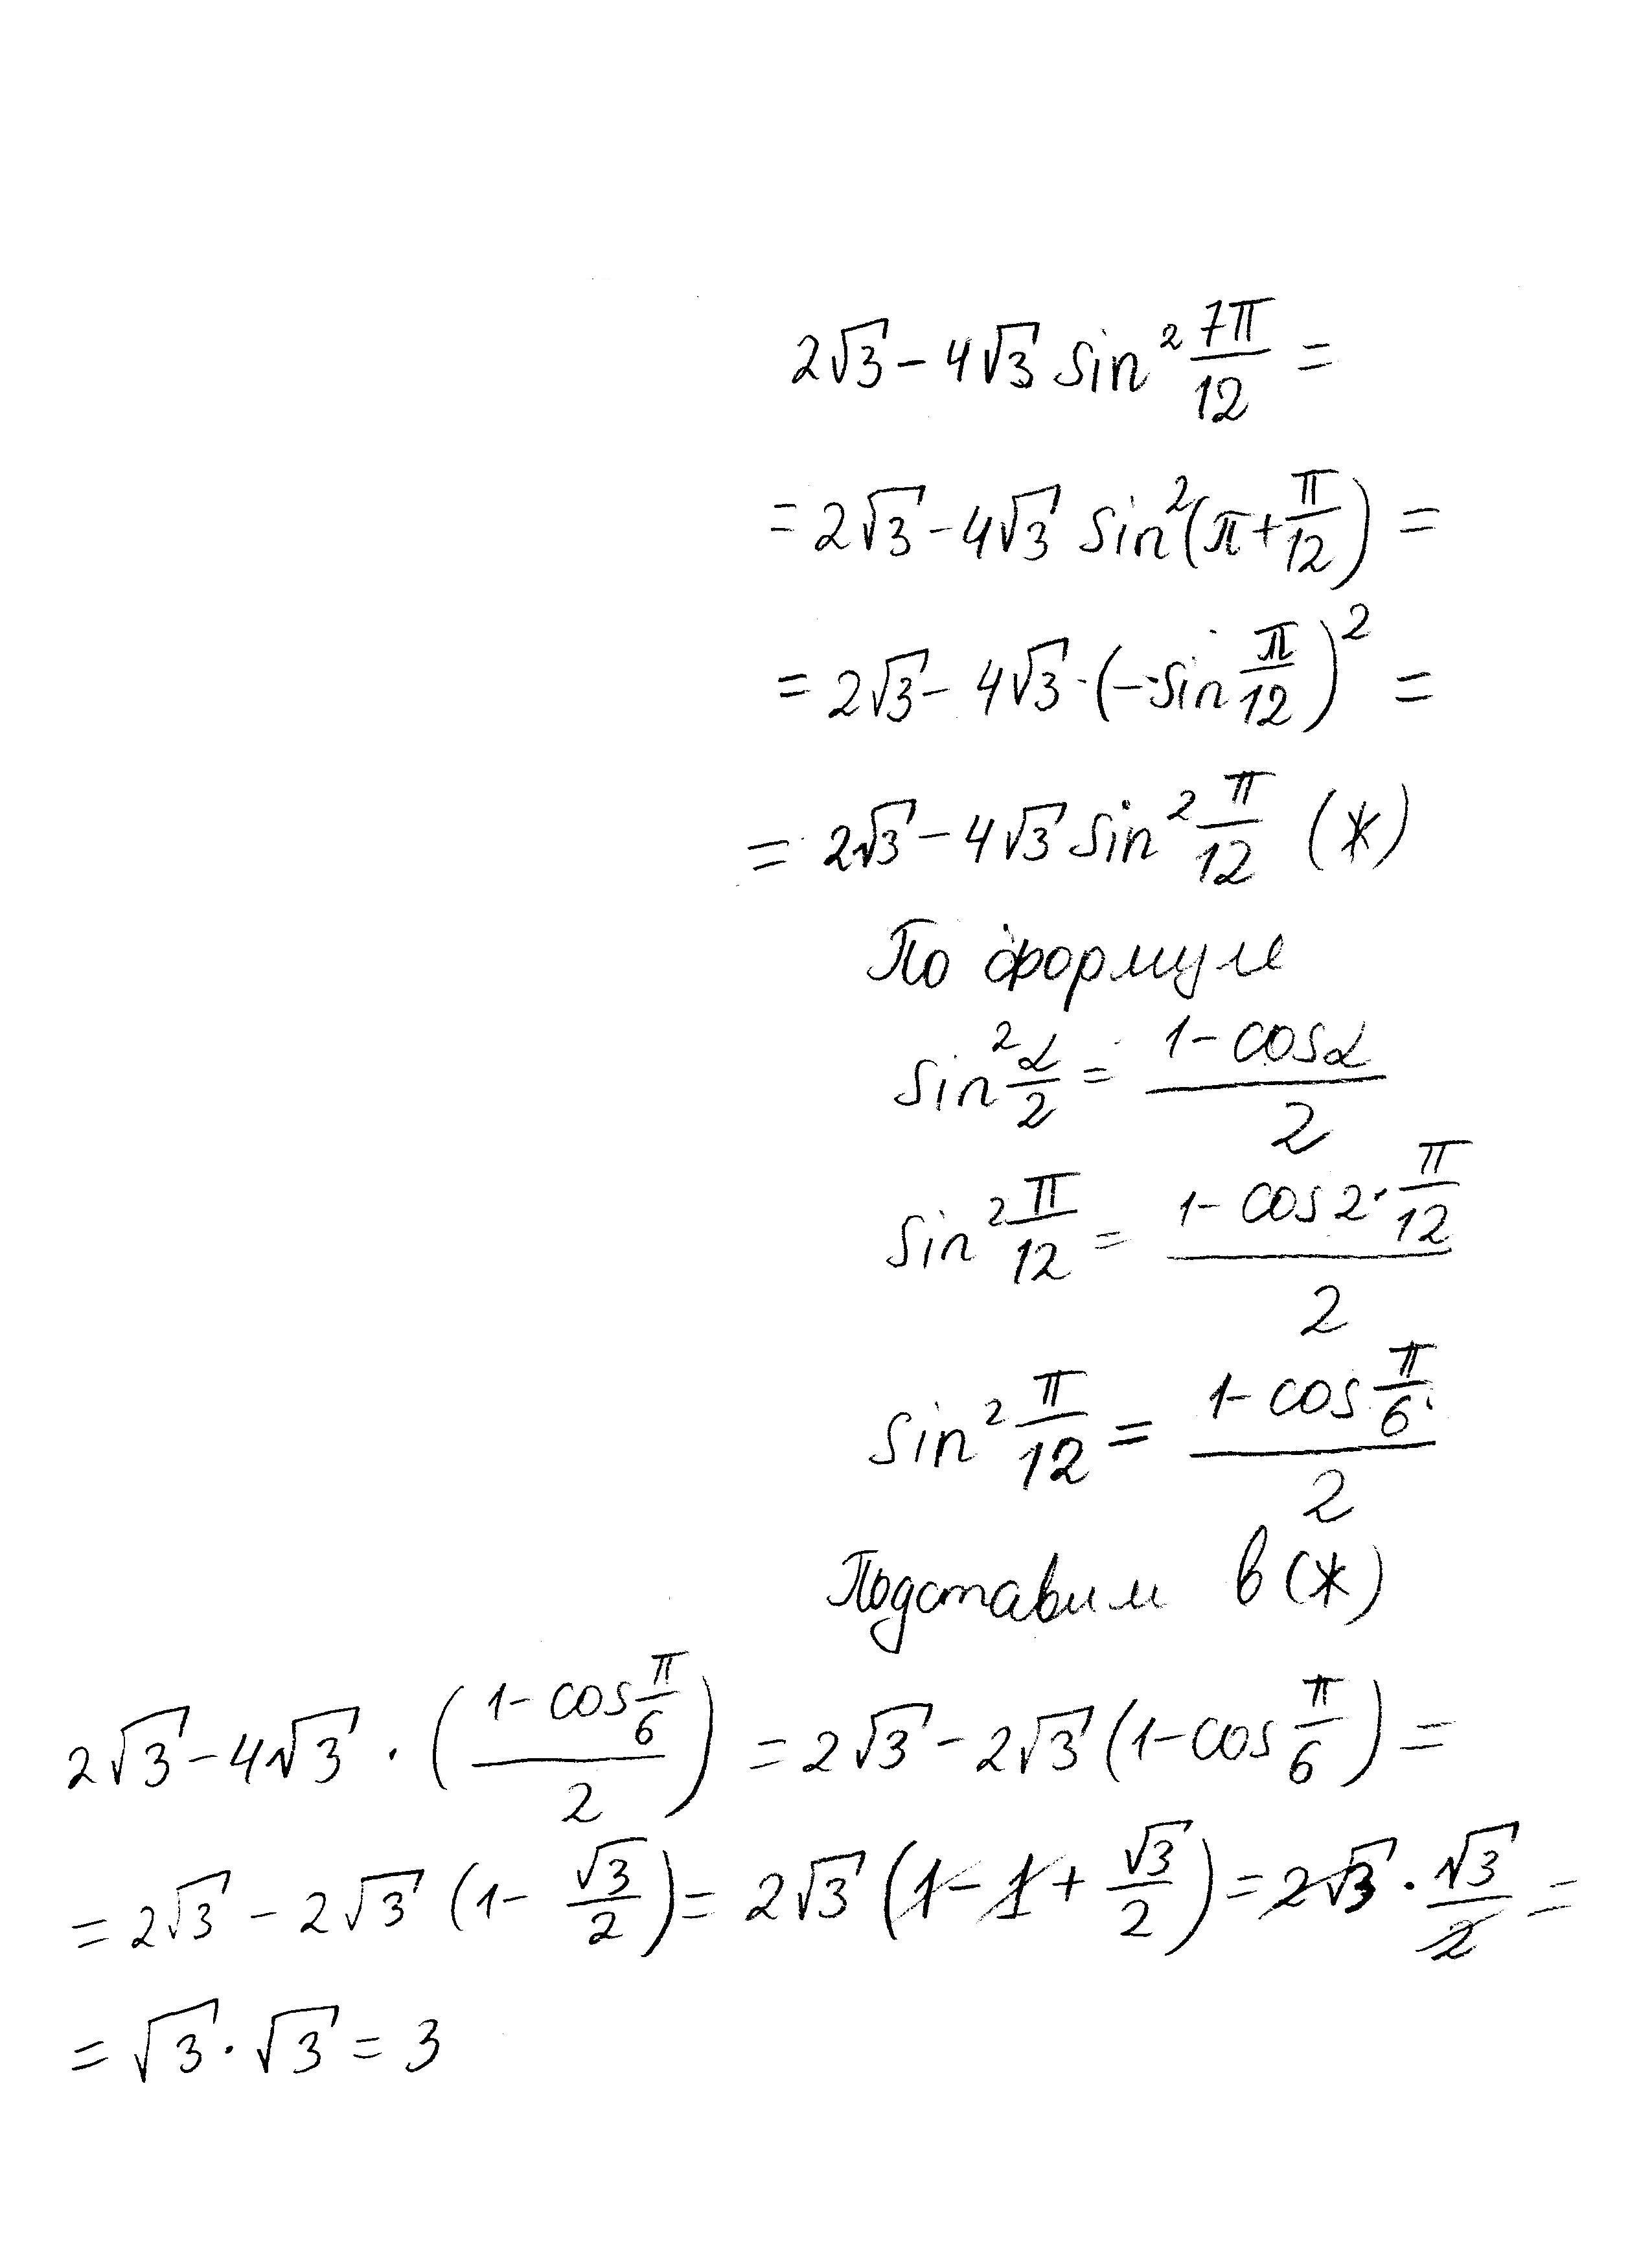 2√3 - 4√3 sin² 7π/12 =
= 2√3 - 4√3 sin²(π + π/12) =
= 2√3 - 4√3 · (-sin π/12)² =
= 2√3 - 4√3 sin² π/12 (*)
По формуле
sin² α/2 = (1 - cos α)/2
sin² π/12 = (1 - cos 2 · π/12)/2
sin² π/12 = (1 - cos π/6)/2
Подставим в (*)
2√3 - 4√3 · ((1 - cos π/6)/2) = 2√3 - 2√3 (1 - cos π/6) =
= 2√3 - 2√3 (1 - √3/2) = 2√3 (1 - 1 + √3/2) = 2√3 · √3/2 =
= √3 · √3 = 3